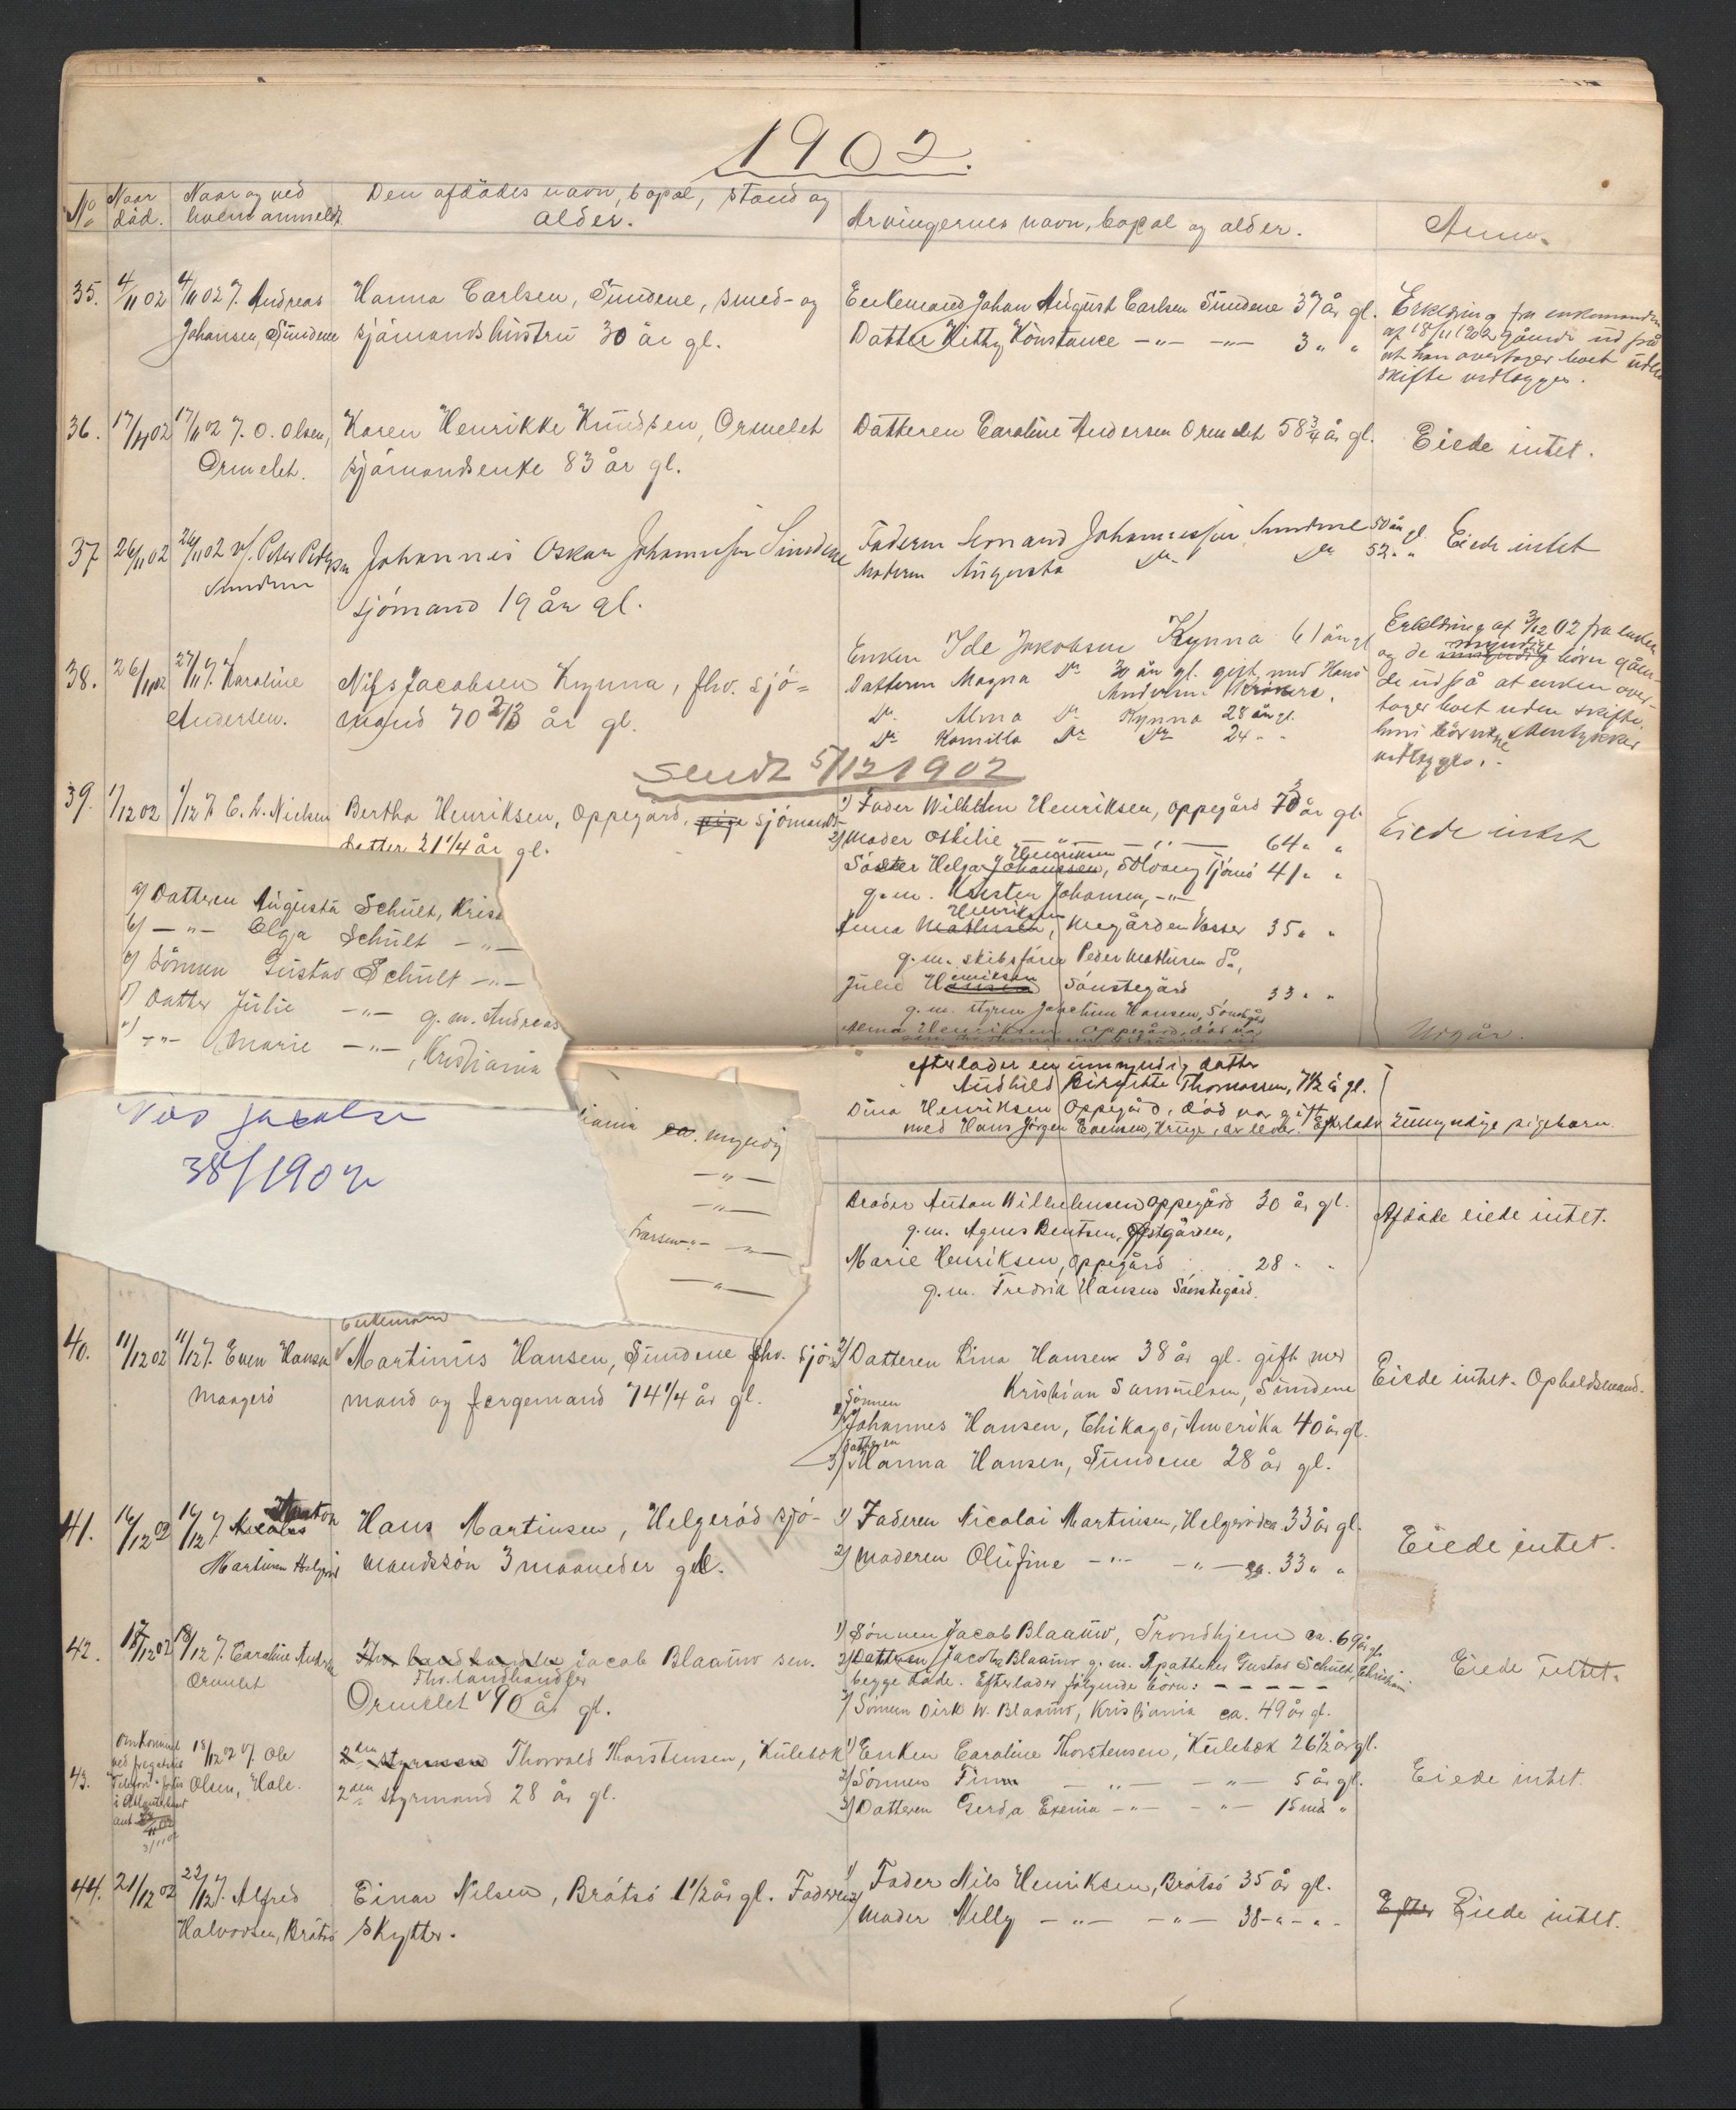 1902.
No Naar död. Naar og ved hvem anmeldt Den afdödes navn, bopæl, stand og alder. Arvingernes navn, bopæl og alder. Anm.
35. 4/11 02 4/11 02 f. Andreas Hanna Carlsen, Sundene, smed- og Enkemand Johan August Carlsen Sundene 37 år gl. Erklæring fra enkemanden
Johansen, Sundene sjömandshustru 30 år gl. Datter Kitty Konstance -"- -"- 3 " " af 18/11 1902 gående ud på
at han overtager boet uden
skifte vedlægges.
36. 17/11 02 17/11 02 f. O. Olsen, Karen Henrikke Knudsen, Ormelet Datteren Caroline Andersen Ormelet 58 3/4 år gl. Eiede intet.
Ormelet. sjömandsenke 83 år gl.
37 26/11 02 26/11 02 v/. Peter Petersen Johannes Oskar Johannessen Sundene Faderen Johannessen Sundene 50 år gl Eiede intet
Sundene Moderen Augusta Do Do 52 " "
sjömand 19 år gl.
38. 26/11 02 27/11 f. Karoline Nils Jacobsen Kynna, fhv. sjö= Enken Ide Jakobsen Kynna 61 år gl Erklæring af 3/12 02 fra enken
Andersen. mand 70 2/3 år gl. Datteren Magna Do 30 år gl. gift med Hans og de myndige börn gåen-
Andersen de ud på at enken over-
Do Alma Do Kynna 28 år gl. tager boet uden skifte.
Do Kamilla Do Do 24 " "
vedlægges.
Sendt 5/12 1902
39. 1/12 02 1/12 f. E. L. Nielsen Bertha Henriksen, Oppegård, pige sjömands- 1) Fader Wilhelm Henriksen, Oppegård 73 år gl. Eiede intet
datter 21 1/4 år gl. 2) Moder Othilie -"- -"- 64 " "
Henriksen
Söster Helga Johansen, Solvang Tjömö 41 " "
g.m. Karsten Johansen, -"-
Henriksen
Anna Mathisen, Megården Vasser 35 " "
g.m. skibsförer Peder Mathisen do,
Julie Henriksen Sönstegård 33 " "
g.m. styrm Joachim Hansen, Sönstegår
Alma Henriksen Oppegård, död var Utgår.
a) Datteren Augusta Schult, Kris
b) -"- Olga Schult -"-
c) Sönnen Gustav Schult -"-
d) Datter Julie -"- g.m. Andreas
e) -"- Marie -"-, Kristiania
efterlader en umyndig datter
Audhild Birgitte Thomassen, 7 1/2 år gl.
Dina Henriksen Oppegård, död var gift
med Hans Jörgen Evensen, Kruge, der lever. Efterlader 2 umyndige pigebarn.
Nils Jacobse
38/1902
iania ca. myndig
-"-
-"-
Ivarsen -"- -"-
-"-
Broder Anton Wilhelmsen Oppegård 30 år gl. Afdöde eiede intet.
g.m. Agnes Bentsen, Östgården,
Marie Henriksen, Oppegård 28 " "
g.m. Fredrik Hansen Sönstegård.
Enkemand
40. 11/12 02 11/12 f. Even Hansen Martinus Hansen, Sundene fhv. sjö- 2) Datteren Lina Hansen 38 år gl. gift med Eiede intet. Opholdsmand.
Maagerö mand og færgemand 74 1/4 år gl. Kristian Samuelsen, Sundene
Sönnen
1) Johannes Hansen, Chikago, Amerika 40 år gl.
Datteren
3) Hanna Hansen, Sundene 28 år gl.
41. 16/12 02 16/12 f. Nicolai Anton Hans Martinsen, Helgeröd sjö- 1) Faderen Nicolai Martinsen, Helgeröd ca 33 år gl. Eiede intet.
Martinsen Helgeröd mandssön 3 maaneder gl. 2) Moderen Olufine -"- -"- ca. 33 " "
42. 17/12 02 18/12 f. Caroline Andersen Fhv. landhandler Jacob Blaauw sen. 1) Sönnen Jacob Blaauw, Trondhjem ca. 69 år gl. Eiede intet.
Ormelet Fhv. landhandler 2) Datteren Jacoba Blaauw g.m. Apotheker Gustav Schult, Christiania
Ormelet 90 år gl. begge döde. Efterlader fölgende börn: - - - - -
3) Sönnen Dirk W. Blaauw, Kristiania ca. 49 år gl.
43. Omkommet ved fregatskib 18/12 02 v/. Ole 2den styrmand Thorvald Thorstensen, Kulebæk 1) Enken Caroline Thorstensen, Kulebæk 26 1/2 år gl. Eiede intet.
Olsen, Hole. 2den styrmand 28 år gl. 2) Sönnen Finn -"- -"- 5 år gl.
i Atlanterhavet 3) Datteren Gerda Exenia -"- -"- 15 md "
3/11 02
44. 21/12 02 22/12 f. Alfred Einar Nilsen, Bråtsö 1 1/2 år gl. Faderen 1) Fader Nils Henriksen, Bråtsö 35 år gl. Efter Eiede intet.
Halvorsen, Bråtsö skytter. 2) Moder Nelly -"- -"- 38 -"- "-